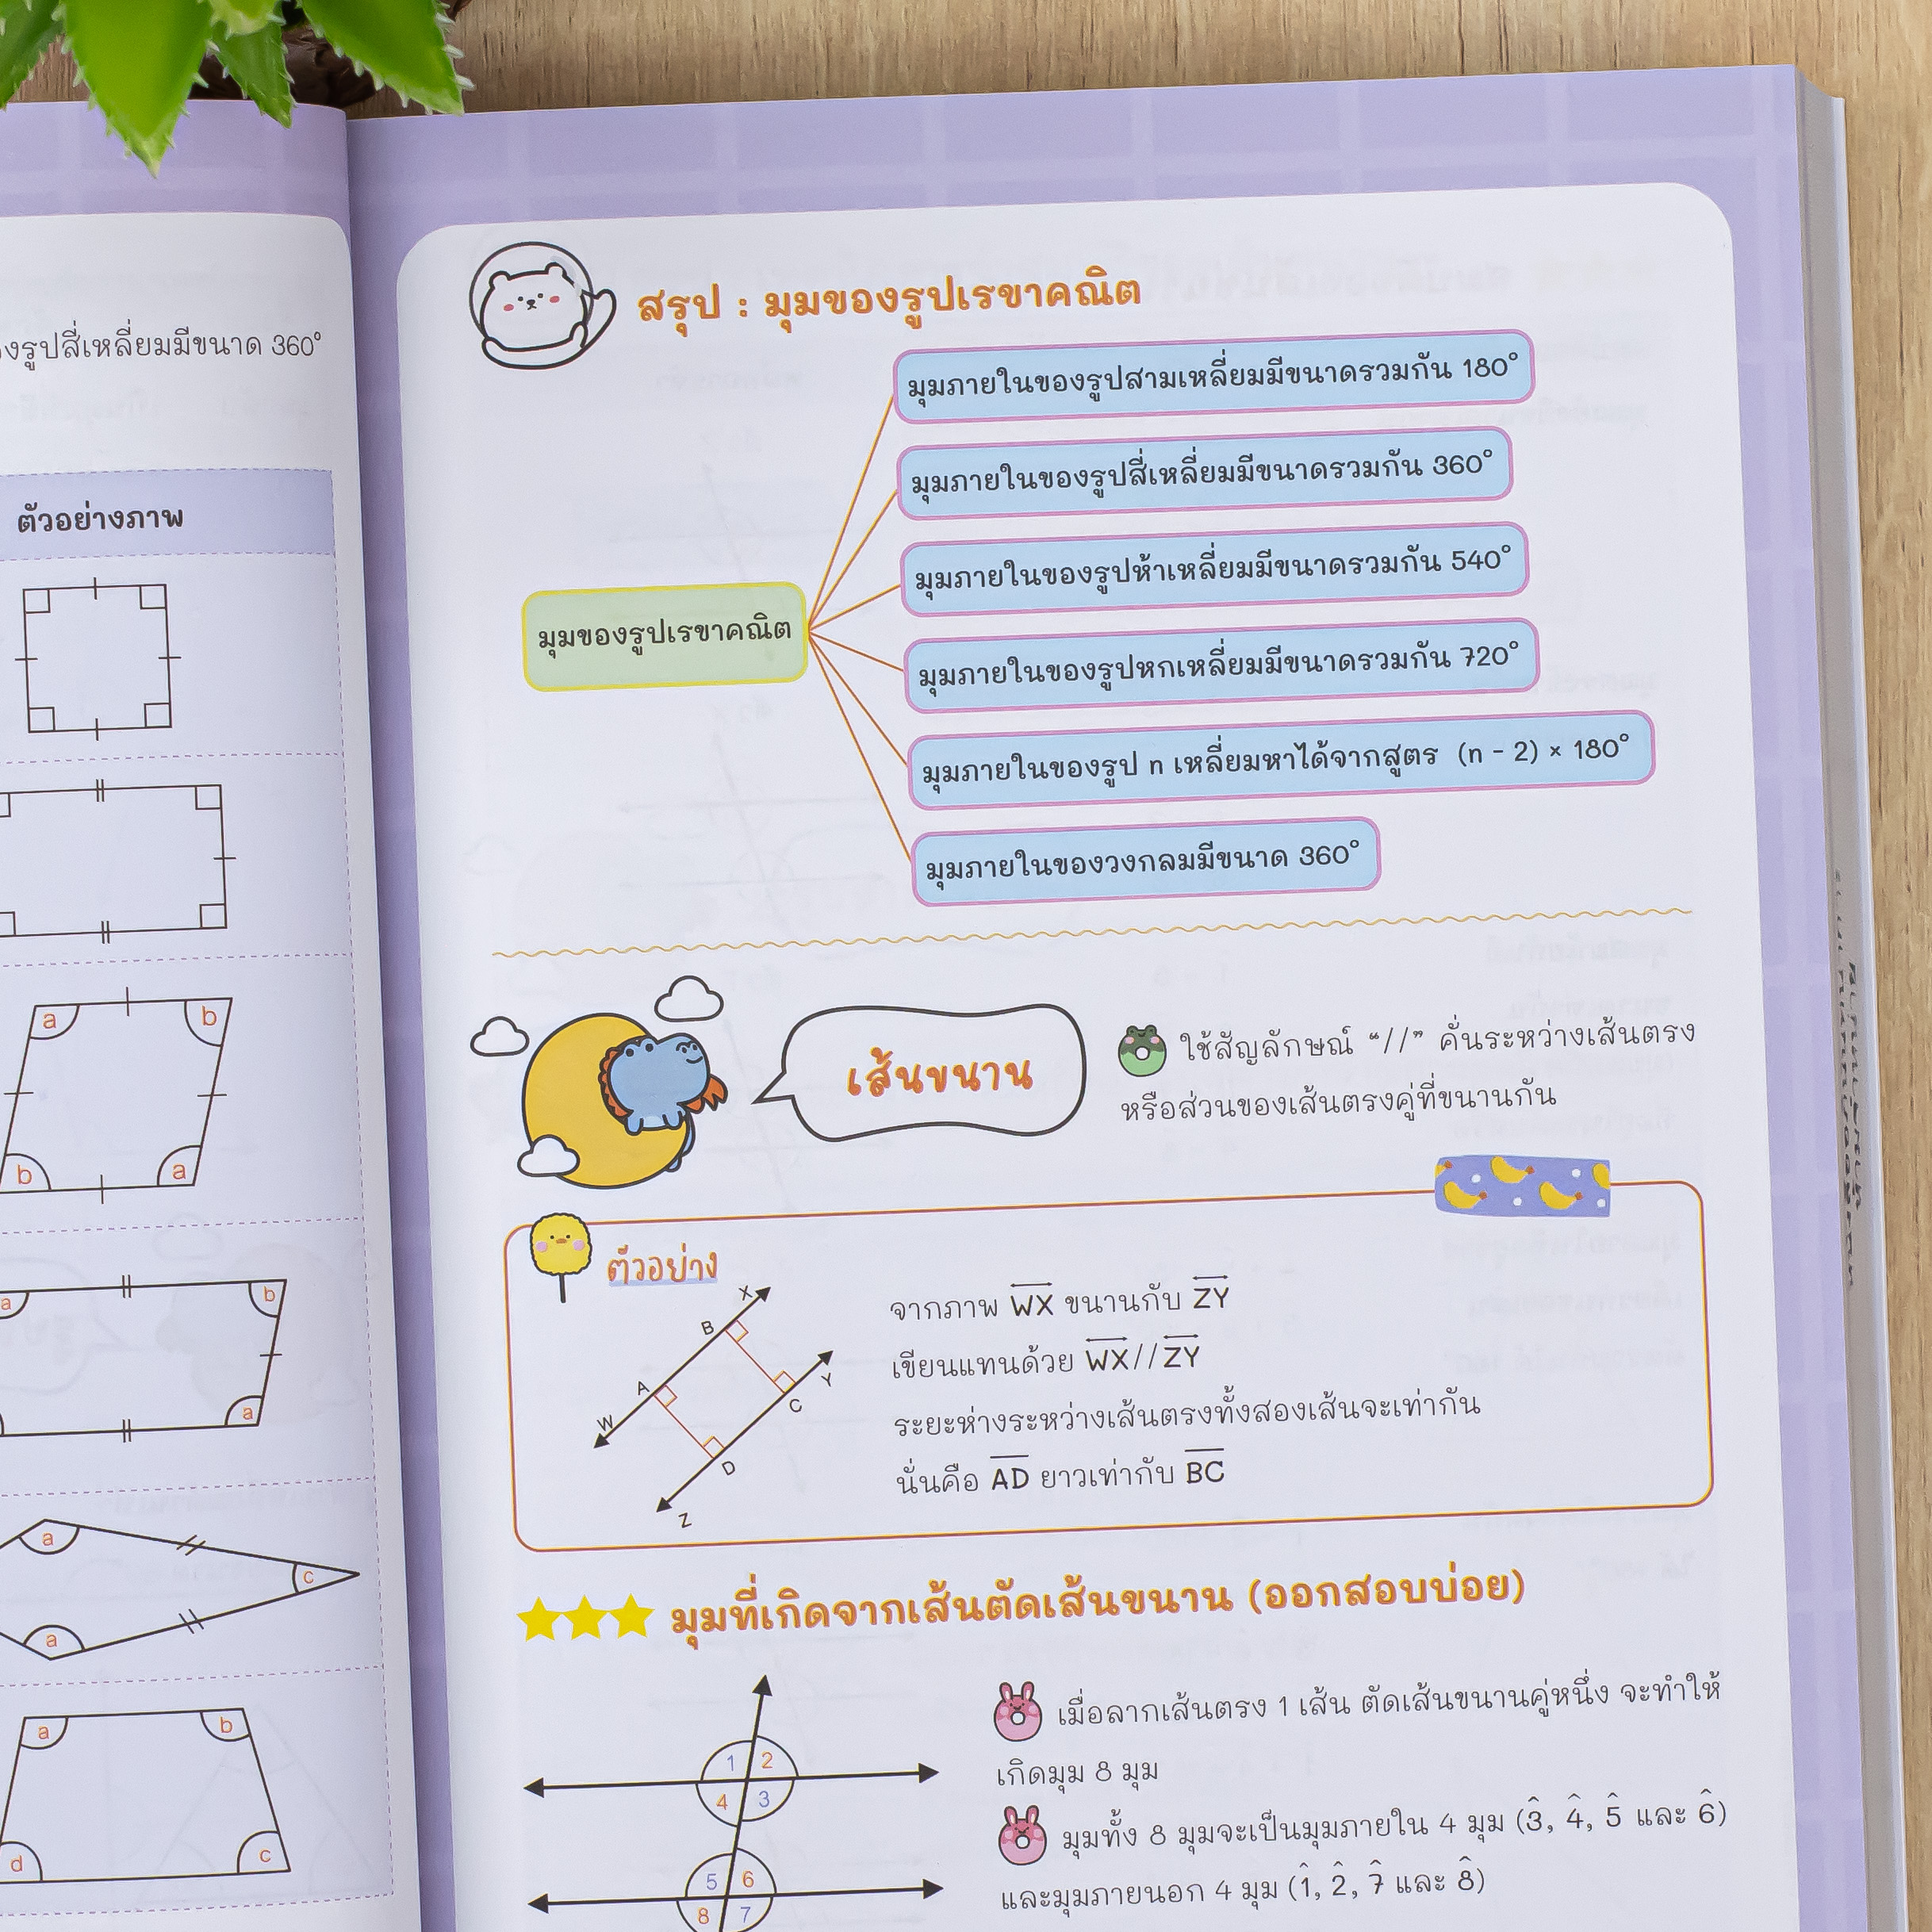 งรูปสี่เหลี่ยมมีขนาด 360°
ตัวอย่างภาพ
a
b
b
a
a
b
a
a
c
a
a
b
d
c
สรุป : มุมของรูปเรขาคณิต
มุมของรูปเรขาคณิต
มุมภายในของรูปสามเหลี่ยมมีขนาดรวมกัน 180°
มุมภายในของรูปสี่เหลี่ยมมีขนาดรวมกัน 360°
มุมภายในของรูปห้าเหลี่ยมมีขนาดรวมกัน 540°
มุมภายในของรูปหกเหลี่ยมมีขนาดรวมกัน 720°
มุมภายในของรูป n เหลี่ยมหาได้จากสูตร (n - 2) × 180°
มุมภายในของวงกลมมีขนาด 360°
เส้นขนาน
ใช้สัญลักษณ์ “//” คั่นระหว่างเส้นตรง
หรือส่วนของเส้นตรงคู่ที่ขนานกัน
ตัวอย่าง
X
B
A
W
Y
C
D
Z
จากภาพ WX ขนานกับ ZY
เขียนแทนด้วย WX//ZY
ระยะห่างระหว่างเส้นตรงทั้งสองเส้นจะเท่ากัน
นั่นคือ AD ยาวเท่ากับ BC
มุมที่เกิดจากเส้นตัดเส้นขนาน (ออกสอบบ่อย)
1 2
4 3
5 6
8 7
เมื่อลากเส้นตรง 1 เส้น ตัดเส้นขนานคู่หนึ่ง จะทำให้
เกิดมุม 8 มุม
มุมทั้ง 8 มุมจะเป็นมุมภายใน 4 มุม (3̂, 4̂, 5̂ และ 6̂)
และมุมภายนอก 4 มุม (1̂, 2̂, 7̂ และ 8̂)